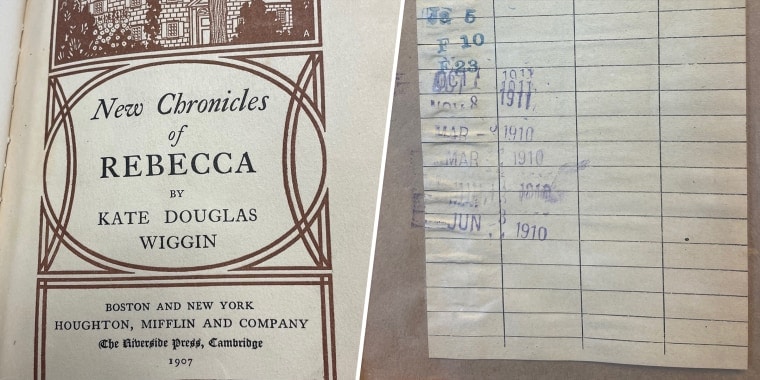 New Chronicles
of
REBECCA
BY
KATE DOUGLAS
WIGGIN
BOSTON AND NEW YORK
HOUGHTON, MIFFLIN AND COMPANY
The Riverside Press, Cambridge
1907
5
F 10
F 23
OCT 1911
NOV 8 1911
MAR 1910
MAR 1910
1910
JUN 1910